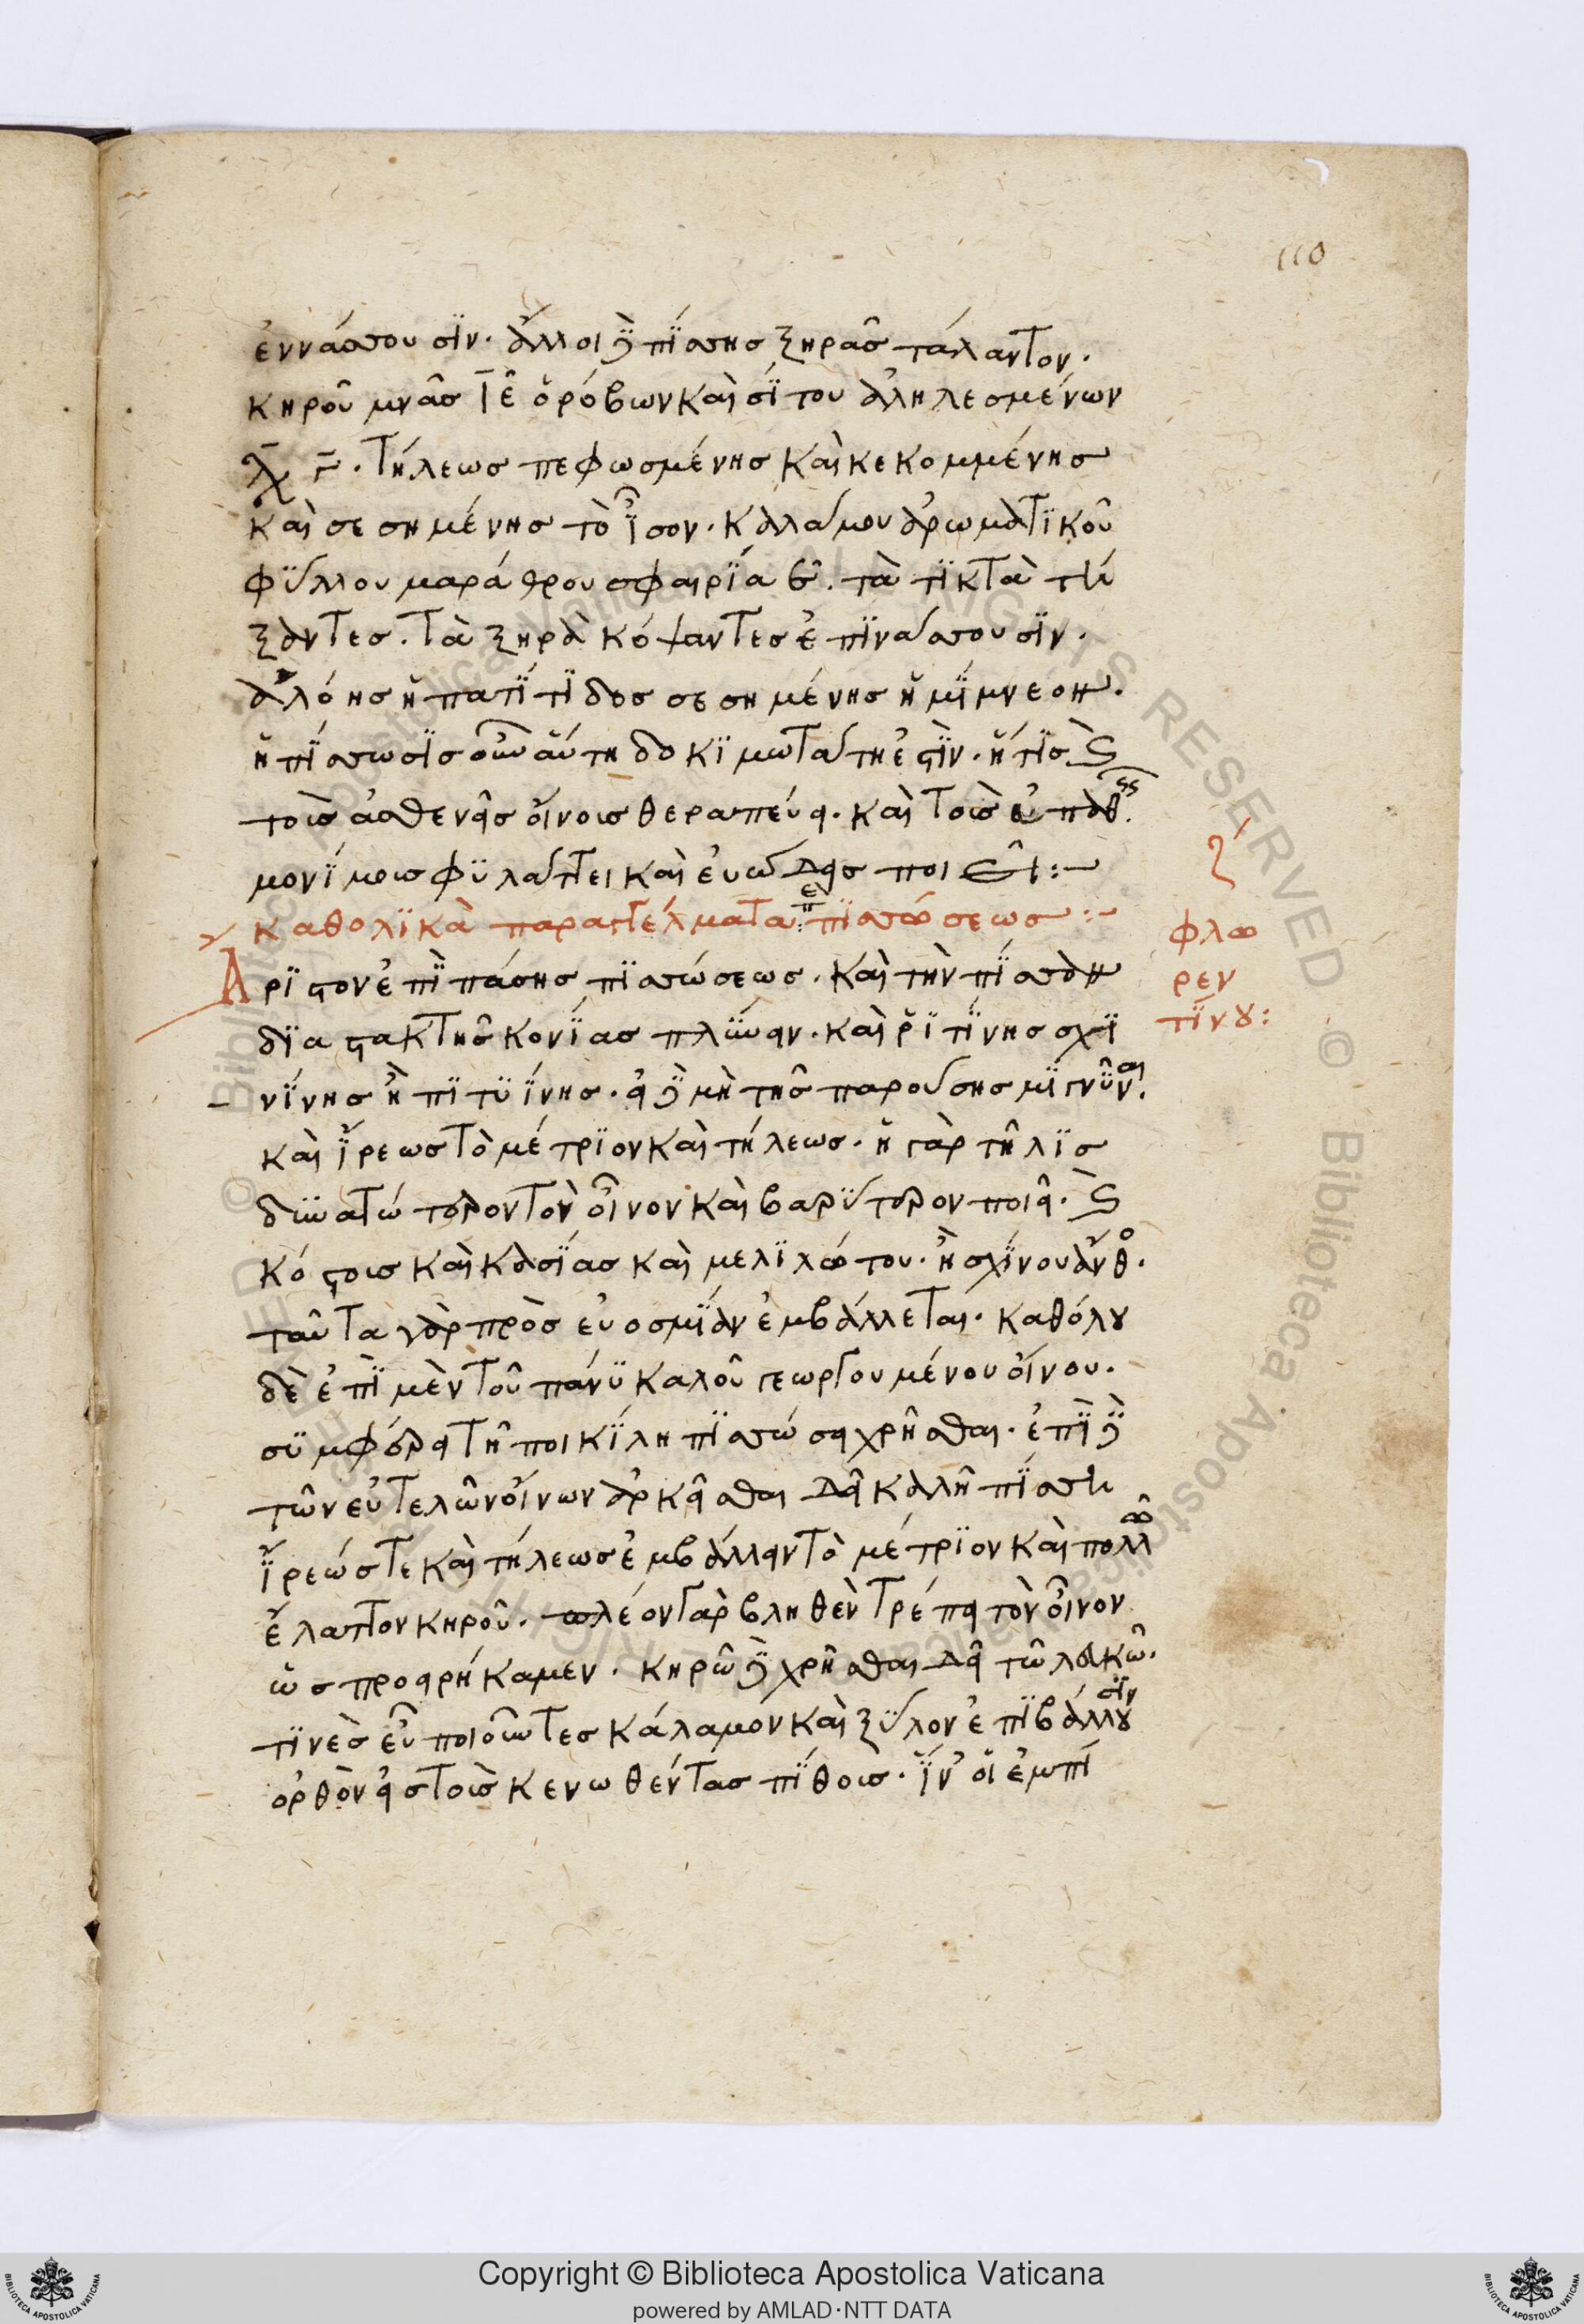 110
ἐννάσσουσϊν. ἄλλοι δὲ πΐσσησ ξηρᾶσ τάλαντον.
κηροῦ μνᾶσ ῑε ὀρόβων καὶ σΐτου ἀληλεσμένων
τήλεωσ πεφωσμένησ καὶ κεκομμένησ
καὶ σεσημένησ τὸ ἶσον. καλάμου ἀρωματϊκοῦ
φΰλλου μαράθρου σφαιρΐα ϛ. τὰ τϊκτὰ τή
ξαντεσ. τὰ ξηρὰ κόψαντεσ ἐπϊνάσσουσϊν.
ἀλόησ ἢ πατϊτΐδοσ σεσημένησ ἢ μΐμνεοη.
ἡ πΐσσωσϊσ οὖν αὕτη δοκϊμωτάτη ἐστϊν. ἥτϊσ καὶ
τοὶσ ἀσθενεῖσ οἴνοισ θεραπεύει. καὶ τοὶσ
μονΐμοισ φϋλάττει καὶ εὐώδεισ ποιεῖ:
καθολϊκὰ παραγγέλματα ἐπὶ πϊσσώσεωσ:
Ἄρϊστον ἐπὶ πάσησ πϊσσώσεωσ. καὶ τὴν πΐσσαν
δϊὰ στακτῆσ κονΐασ πλΰνειν. καὶ ῥϊτΐνησ σχϊ
νΐνησ ἢ πϊτϋΐνησ. εἰ δὲ μὴ τῆσ παρούσησ μϊγνῦναι.
καὶ ἴρεωσ τὸ μέτρϊον καὶ τήλεωσ. ἡ γὰρ τῆλϊσ
δϋνατώτερον τὸν οἶνον καὶ βαρΰτερον ποιεῖ. καὶ
κόστοισ καὶ κασΐασ καὶ μελϊλώτου. ἢ σχΐνου ἄνθοσ.
ταῦτα γὰρ πρὸσ εὐοσμΐαν ἐμβάλλεται. καθόλου
δὲ ἐπὶ μὲν τοῦ πάνϋ καλοῦ γεωργουμένου οἴνου.
σϋμφέρει τῆ ποικΐλη πϊσσώσει χρῆσθαι. ἐπὶ δὲ
τῶν εὐτελῶν οἴνων ἀρκεῖσθαι δεῖ καλῆ πΐσση
ἴρεώσ τε καὶ τήλεωσ ἐμβάλλειν τὸ μέτρϊον καὶ πολλῶ
ἔλαττον κηροῦ. πλέον γὰρ βληθὲν τρέπει τὸν οἶνον
ὡσ προειρήκαμεν. κηρῶ δὲ χρῆσθαι δεῖ τῶ λευκῶ.
τϊνὲσ εὖ ποιοῦντεσ κάλαμον καὶ ξΰλον ἐπϊβάλλουσϊν
ὀρθὸν εἰσ τοὺσ κενωθέντασ πΐθουσ. ἵν' οἱ ἐμπί
ζ'
φλω
ρεν
τΐνου:
Copyright © Biblioteca Apostolica Vaticana
powered by AMLAD·NTT DATA